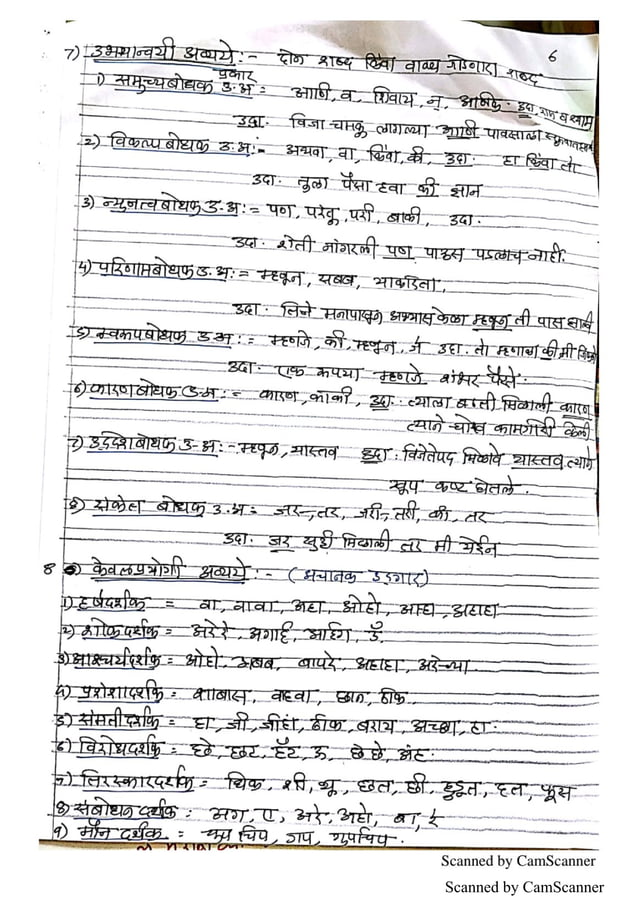 6
7) उभयान्वयी अव्यये :- दोन शब्द किंवा वाक्य जोडणारा शब्द
प्रकार
1) समुच्चयबोधक उ.अ := आणि, व, शिवाय, न, आणिक. उदा. राम व श्याम
उदा. विजा चमकू लागल्या आणि पावसाला
2) विकल्पबोधक उ.अ := अथवा, वा, किंवा, की, उदा. हा किंवा तो
उदा. तुला पैसा हवा की ज्ञान
3) न्युनत्वबोधक उ.अ := पण, परंतू, परी, बाकी, उदा.
उदा. शेती नांगरली पण पाऊस पडलाच नाही.
4) परिणामबोधक उ.अ := म्हणून, सबब, याकरिता,
उदा. तिने मनापासून अभ्यास केला म्हणून ती पास झाली
5) स्वरुपबोधक उ.अ := म्हणजे, की, म्हणून, जे उदा. तो म्हणाला की मी
उदा. एक रुपया म्हणजे शंभर पैसे.
6) कारणबोधक उ.अ := कारण, का की, उदा. त्याला बढती मिळाली कारण
त्याने चोख कामगीरी केली
7) उद्देशबोधक उ.अ :- म्हणून, यास्तव उदा : विजेतेपद मिळावे यास्तव त्याने
खूप कष्ट घेतले.
8) संकेत बोधक उ.अ = जर-तर, जरी-तरी, की, तर
उदा. जर सुट्टी मिळाली तर मी येईन
8 केवलप्रयोगी अव्यये :- (अचानक उद्गार)
1) हर्षदर्शक = वा, वावा, अहा, ओहो, आहा, अहाहा
2) शोकदर्शक = अरेरे, अगाई, आईग, ऊँ
3) आश्चर्यदर्शक = ओहो, अबब, बापरे, अहाहा, अरेच्या
4) प्रशंशादर्शक = शाबास, वाहवा, छान, ठीक
5) संमतीदर्शक = हा, जी, जीहां, ठीक, बराय, अच्छा, हा.
6) विरोधदर्शक = छे, छट, हॅट, ऊ, छे छे, अंह.
7) तिरस्कारदर्शक = धिक, शी, थू, छत, छी, हुडूत, हत, फूस
8) संबोधन दर्शक : अग, ए, अरे, अहो, बा, रे
9) मौन दर्शक = चूप चिप, गप, गुपचिप.
Scanned by CamScanner
Scanned by CamScanner